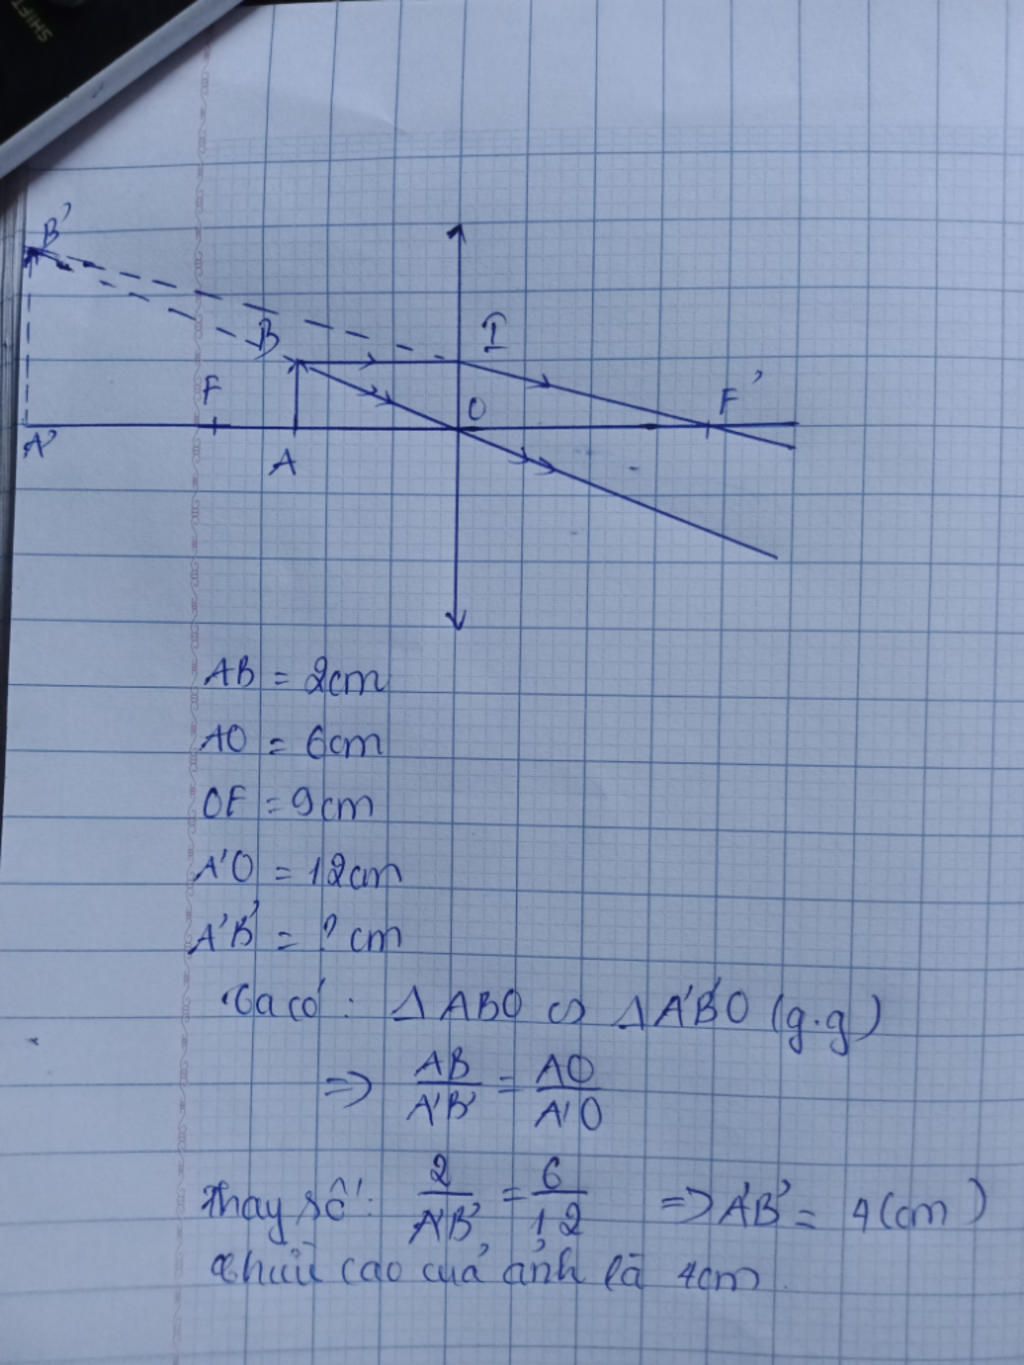 SHIFT
B'
B
I
F
O
F'
A'
A
AB = 2cm
AO = 6cm
OF = 9cm
A'O = 12cm
A'B' = ? cm
Ta có : Δ ABO ∽ Δ A'B'O (g.g)
=> AB/A'B' = AO/A'O
Thay số: 2/A'B' = 6/12 => A'B' = 4(cm)
Chiều cao của ảnh là 4cm.